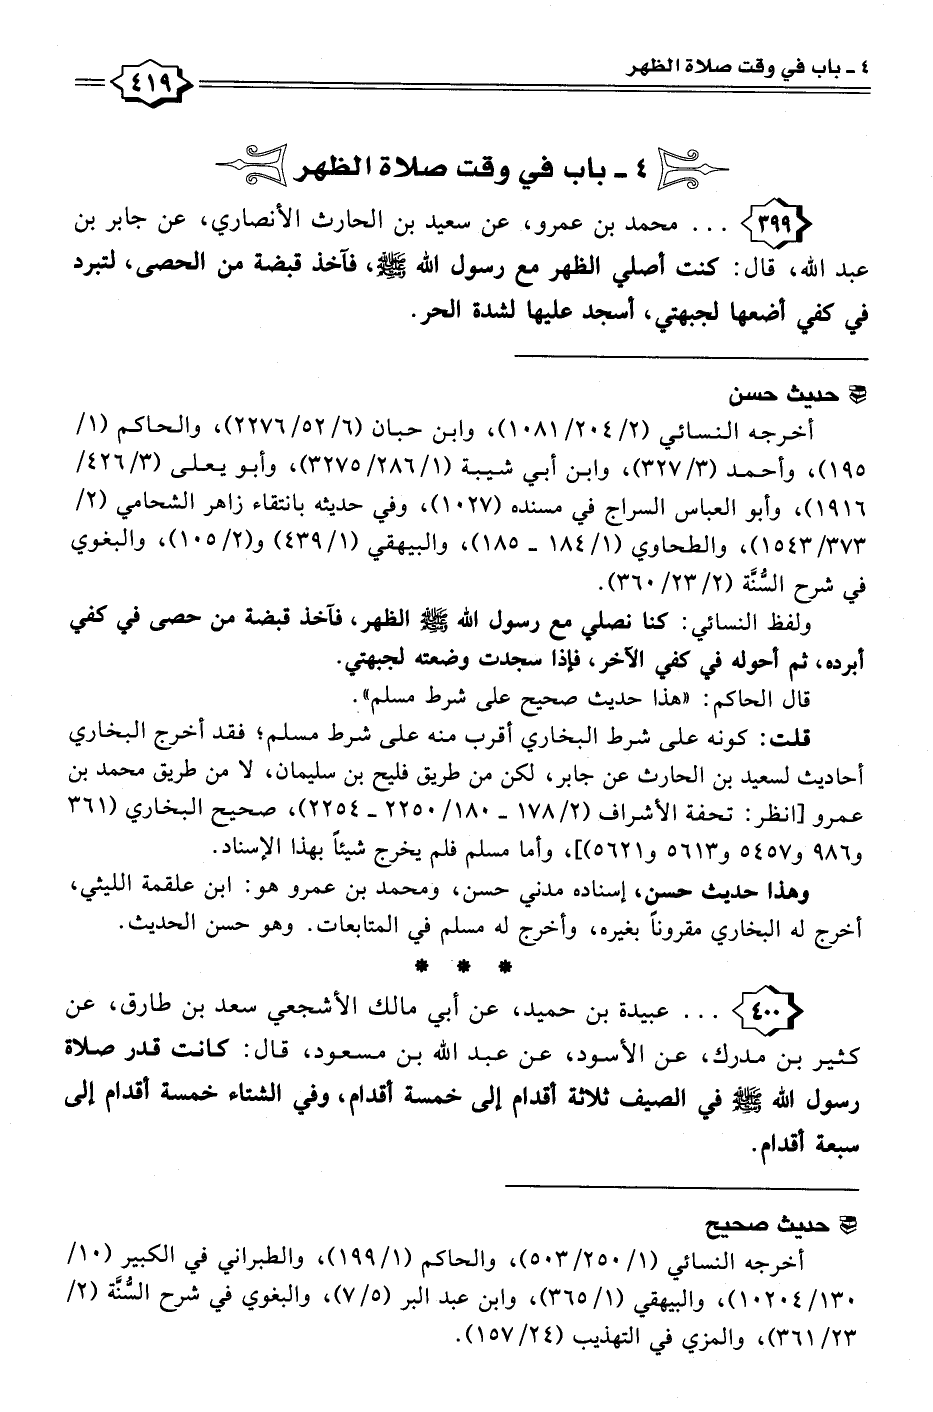 ٤ ـ باب في وقت صلاة الظهر
٤١٩
٤ ـ باب في وقت صلاة الظهر
٣٩٩ ... محمد بن عمرو، عن سعيد بن الحارث الأنصاري، عن جابر بن
عبد الله، قال: كنت أصلي الظهر مع رسول الله ﷺ، فآخذ قبضة من الحصى، لتبرد
في كفي أضعها لجبهتي، أسجد عليها لشدة الحر.
حديث حسن
أخرجه النسائي (٢/ ٢٠٤/ ١٠٨١)، وابن حبان (٦/ ٥٢/ ٢٢٧٦)، والحاكم (١/
١٩٥)، وأحمد (٣/ ٣٢٧)، وابن أبي شيبة (١/ ٢٨٦/ ٣٢٧٥)، وأبو يعلى (٣/ ٤٢٦/
١٩١٦)، وأبو العباس السراج في مسنده (١٠٢٧)، وفي حديثه بانتقاء زاهر الشحامي (٢/
٣٧٣/ ١٥٤٣)، والطحاوي (١/ ١٨٤ ـ ١٨٥)، والبيهقي (١/ ٤٣٩) و(٢/ ١٠٥)، والبغوي
في شرح السُّنَّة (٢/ ٢٣/ ٣٦٠).
ولفظ النسائي: كنا نصلي مع رسول الله ﷺ الظهر، فآخذ قبضة من حصى في كفي
أبرده، ثم أحوله في كفي الآخر، فإذا سجدت وضعته لجبهتي.
قال الحاكم: «هذا حديث صحيح على شرط مسلم».
قلت: كونه على شرط البخاري أقرب منه على شرط مسلم؛ فقد أخرج البخاري
أحاديث لسعيد بن الحارث عن جابر، لكن من طريق فليح بن سليمان، لا من طريق محمد بن
عمرو [انظر: تحفة الأشراف (٢/ ١٧٨ ـ ١٨٠/ ٢٢٥٠ ـ ٢٢٥٤)، صحيح البخاري (٣٦١
و٩٨٦ و٥٤٥٧ و٥٦١٣ و٥٦٢١)]، وأما مسلم فلم يخرج شيئاً بهذا الإسناد.
وهذا حديث حسن، إسناده مدني حسن، ومحمد بن عمرو هو: ابن علقمة الليثي،
أخرج له البخاري مقروناً بغيره، وأخرج له مسلم في المتابعات. وهو حسن الحديث.
* * *
٤٠٠ ... عبيدة بن حميد، عن أبي مالك الأشجعي سعد بن طارق، عن
كثير بن مدرك، عن الأسود، عن عبد الله بن مسعود، قال: كانت قدر صلاة
رسول الله ﷺ في الصيف ثلاثة أقدام إلى خمسة أقدام، وفي الشتاء خمسة أقدام إلى
سبعة أقدام.
حديث صحيح
أخرجه النسائي (١/ ٢٥٠/ ٥٠٣)، والحاكم (١/ ١٩٩)، والطبراني في الكبير (١٠/
١٣٠/ ١٠٢٠٤)، والبيهقي (١/ ٣٦٥)، وابن عبد البر (٥/ ٧)، والبغوي في شرح السُّنَّة (٢/
٢٣/ ٣٦١)، والمزي في التهذيب (٢٤/ ١٥٧).